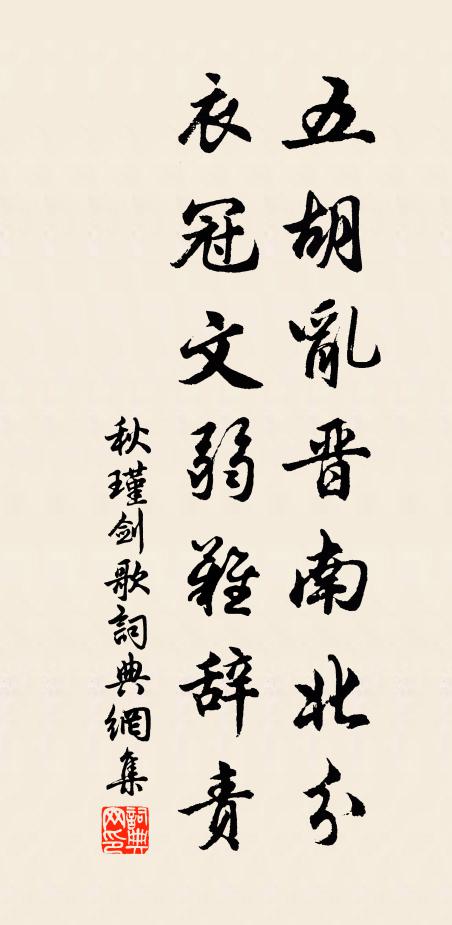 五胡亂晋南北分
衣冠文弱難辞責
秋瑾劍歌詞典網集
詞典网印